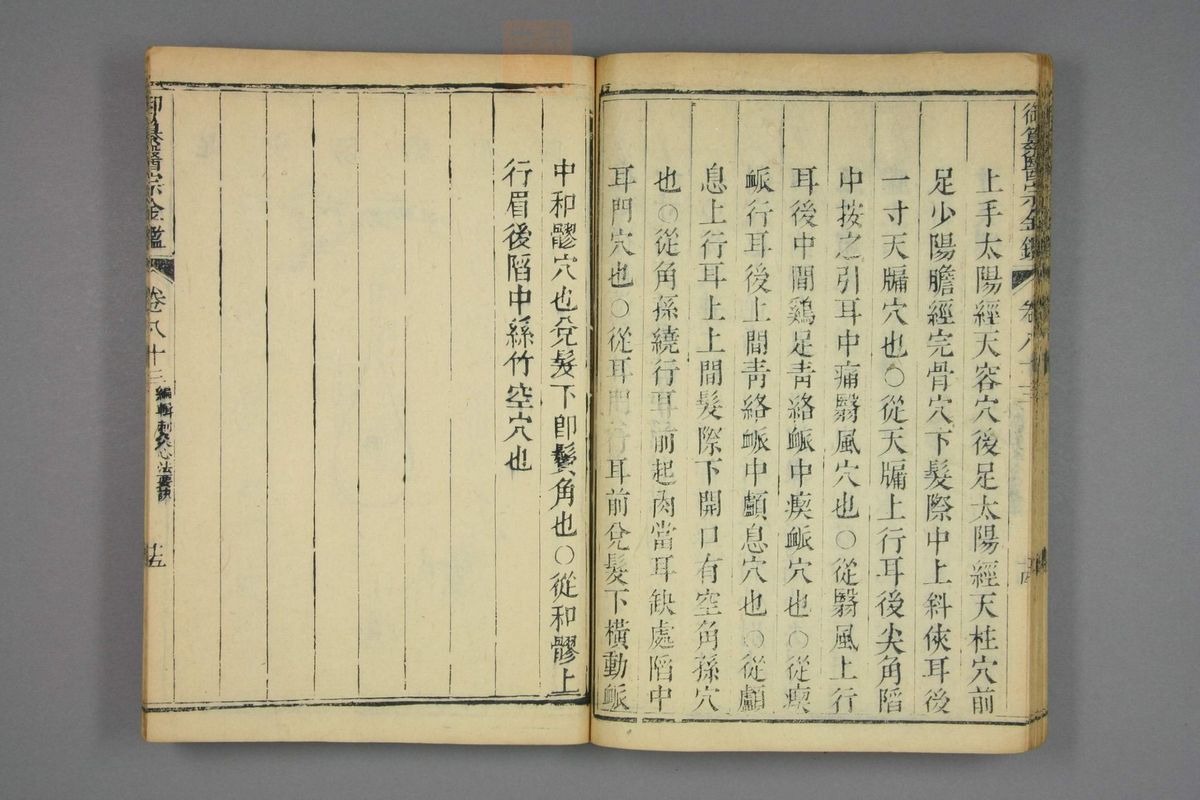 御纂醫宗金鑑 卷八十三
上手太陽經天容穴後足太陽經天柱穴前
足少陽膽經完骨穴下髮際中上斜俠耳後
一寸天牖穴也○從天牖上行耳後尖角陷
中按之引耳中痛翳風穴也○從翳風上行
耳後中間鷄足青絡衇中瘈衇穴也○從瘈
衇行耳後上間青絡衇中顱息穴也○從顱
息上行耳上上間髮際下開口有空角孫穴
也○從角孫繞行耳前起肉當耳缺處陷中
耳門穴也○從耳門行耳前兌髮下橫動衇
中和髎穴也兌髮下卽鬢角也○從和髎上
行眉後陷中絲竹空穴也
御纂醫宗金鑑 卷八十三 編輯刺灸心法要訣 十五